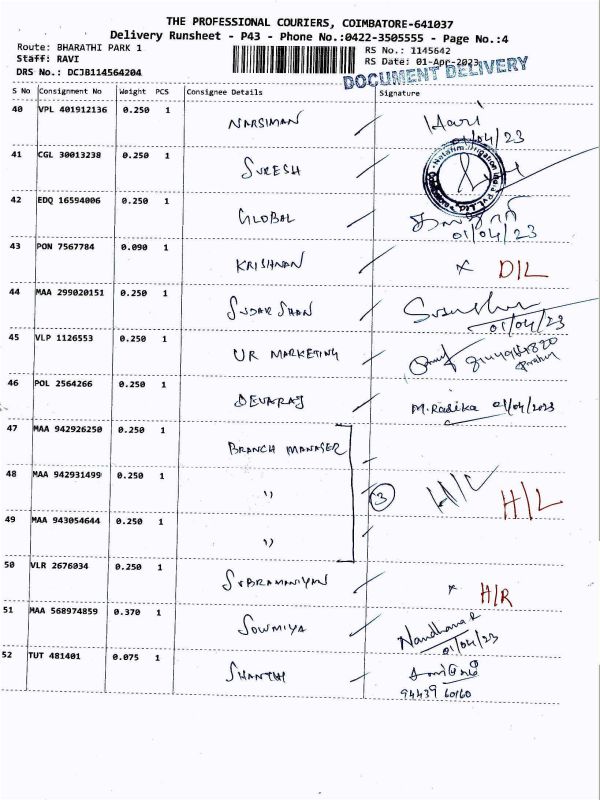 THE PROFESSIONAL COURIERS, COIMBATORE-641037
Delivery Runsheet - P43 - Phone No.:0422-3505555 - Page No.:4
Route: BHARATHI PARK 1 RS No.: 1145642
Staff: RAVI RS Date: 01-Apr-2023
DRS No.: DCJB114564204 DOCUMENT DELIVERY
S No Consignment No Weight PCS Consignee Details Signature
40 VPL 401912136 0.250 1 NARSIMAN Hari
01/04/23
41 CGL 30013238 0.250 1 SURESH
42 EDQ 16594006 0.250 1 GLOBAL
01/04/23
43 PON 7567784 0.090 1 KRISHNAN x D/L
44 MAA 299020151 0.250 1 SUDARSHAN
01/04/23
45 VLP 1126553 0.250 1 UR MARKETING
46 POL 2564266 0.250 1 DEVARAJ M.Radika 01/04/2023
47 MAA 942926250 0.250 1 BRANCH MANAGER
48 MAA 942931499 0.250 1 '' 3 H/L H/L
49 MAA 943054644 0.250 1 ''
50 VLR 2676034 0.250 1 SUBRAMANIYAN x H/R
51 MAA 568974859 0.370 1 SOWMIYA Nandhana R
01/04/23
52 TUT 481401 0.075 1 SHANTHI
94439 60160